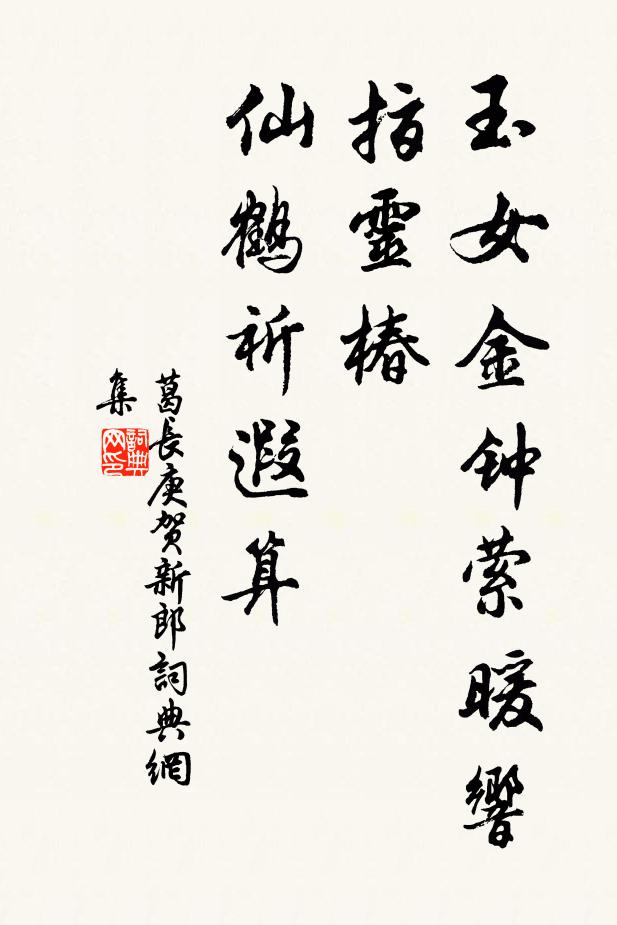 玉女金钟萦暖響
指靈椿
仙鶴祈遐算
葛長庚贺新郎詞典網
集
詞典
网印